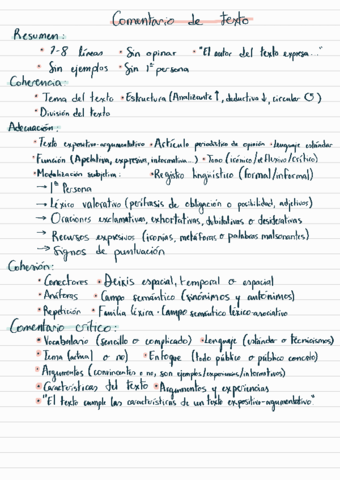 Comentario de texto
Resumen:
• 7-8 líneas • Sin opinar • "El autor del texto expresa..."
• Sin ejemplos • Sin 1ª persona
Coherencia:
• Tema del texto • Estructura (Analizante ↑, deductiva ↓, circular ↺)
• División del texto
Adecuación:
• Texto expositivo-argumentativo • Artículo periodístico de opinión • Lenguaje estándar
• Función (Apelativa, expresiva, informativa...) • Tono (irónico/reflexivo/crítico)
• Modalización subjetiva: • Registro lingüístico (formal/informal)
→ 1ª Persona
→ Léxico valorativo (perífrasis de obligación o posibilidad, adjetivos)
→ Oraciones exclamativas, exhortativas, dubitativas o desiderativas
→ Recursos expresivos (ironías, metáforas o palabras malsonantes)
→ Signos de puntuación
Cohesión:
• Conectores • Deixis espacial, temporal o espacial
• Anáforas • Campo semántico (sinónimos y antónimos)
• Repetición • Familia léxica • Campo semántico léxico asociativo
Comentario crítico:
• Vocabulario (sencillo o complicado) • Lenguaje (estándar o tecnicismos)
• Tema (actual o no) • Enfoque (todo público o público concreto)
• Argumentos (convincentes o no, son ejemplos/experiencias/informativos)
• Características del texto • Argumentos y experiencias
• "El texto cumple las características de un texto expositivo-argumentativo"